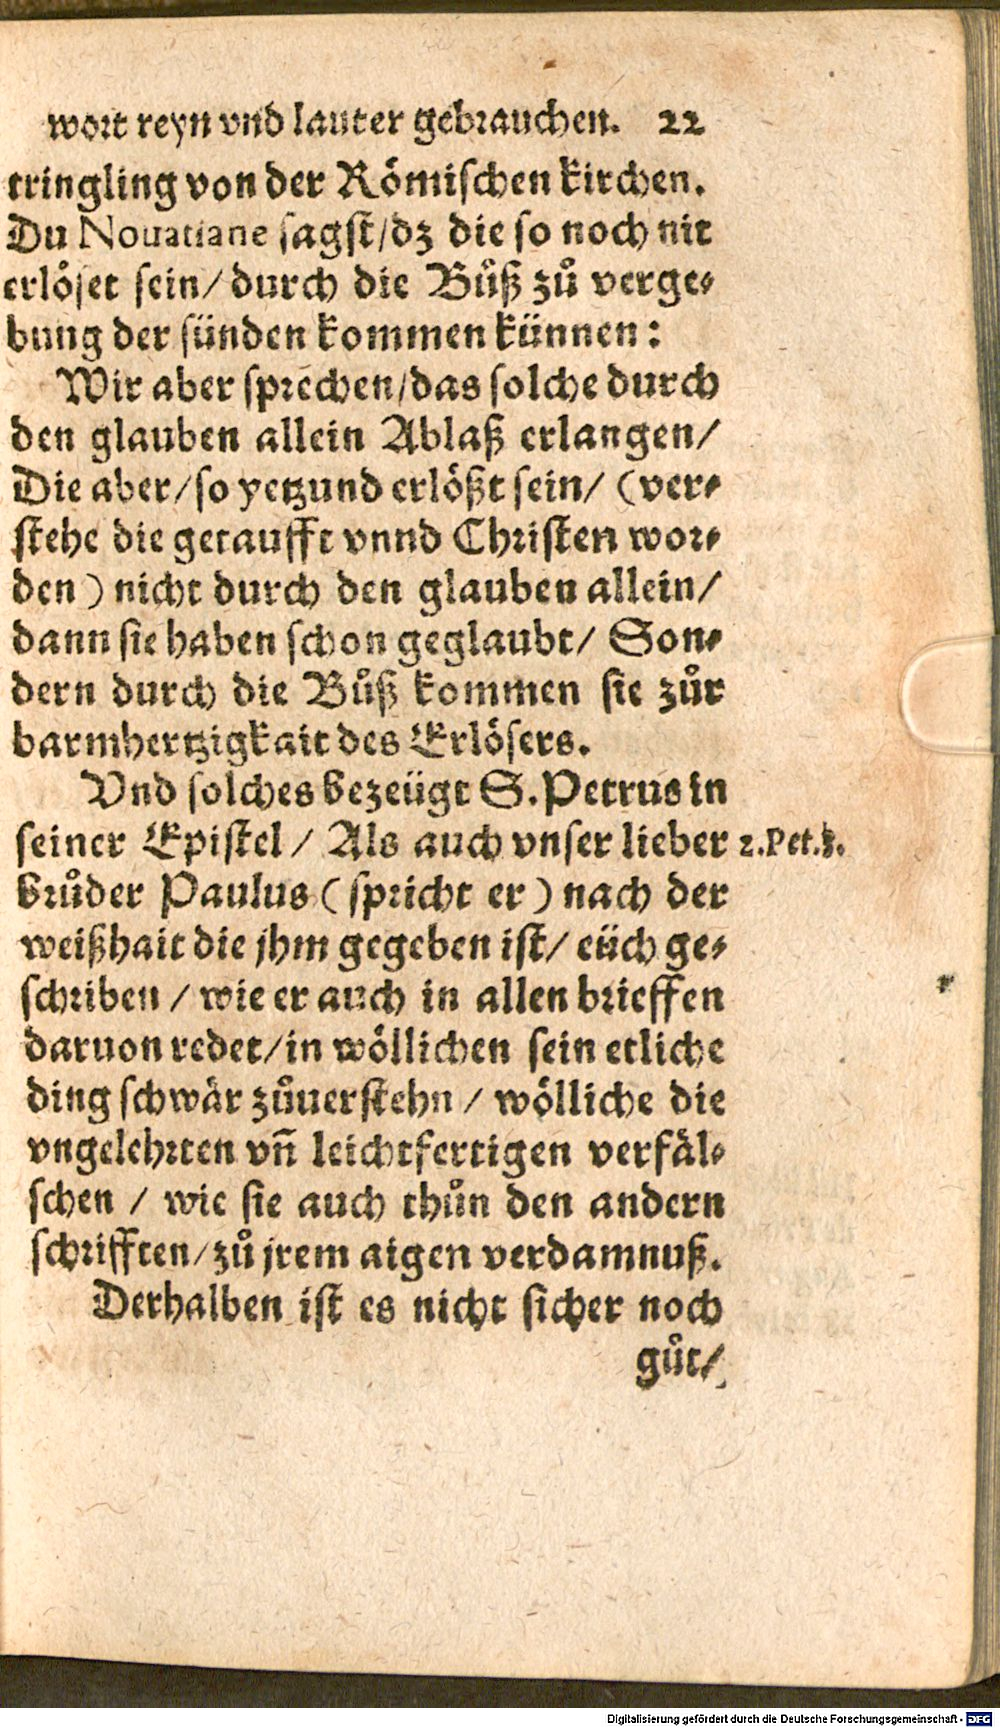 wort reyn vnd lauter gebrauchen. 22
tringling von der Römischen kirchen.
Du Nouatiane sagst/dz die so noch nit
erlöset sein/ durch die Bůß zů verge-
bung der sünden kommen künnen:
Wir aber sprechen/das solche durch
den glauben allein Ablaß erlangen/
Die aber/so yetzund erlößt sein/ (ver-
stehe die getaufft vnnd Christen wor-
den) nicht durch den glauben allein/
dann sie haben schon geglaubt/ Son-
dern durch die Bůß kommen sie zůr
barmhertzigkait des Erlösers.
Vnd solches bezeügt S. Petrus in
seiner Epistel / Als auch vnser lieber 2.Pet.3.
brůder Paulus (spricht er) nach der
weißhait die jhm gegeben ist/ eüch ge-
schriben / wie er auch in allen brieffen
daruon redet/in wöllichen sein etliche
ding schwär zůuerstehn / wölliche die
vngelehrten vñ leichtfertigen verfäl-
schen / wie sie auch thůn den andern
schrifften/zů jrem aigen verdamnuß.
Derhalben ist es nicht sicher noch
gůt/
Digitalisierung gefördert durch die Deutsche Forschungsgemeinschaft - DFG